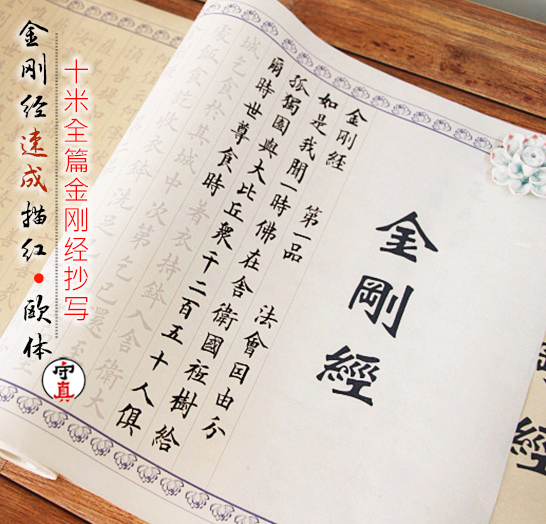 金刚经速成描红•欧体
十米全篇金刚经抄写
守真
金剛經
金剛經 第一品 法會因由分
如是我聞一時佛在舍衛國祇樹給
孤獨園與大比丘衆千二百五十人俱
爾時世尊食時著衣持鉢入舍衛大
城乞食於其城中次第乞已還至